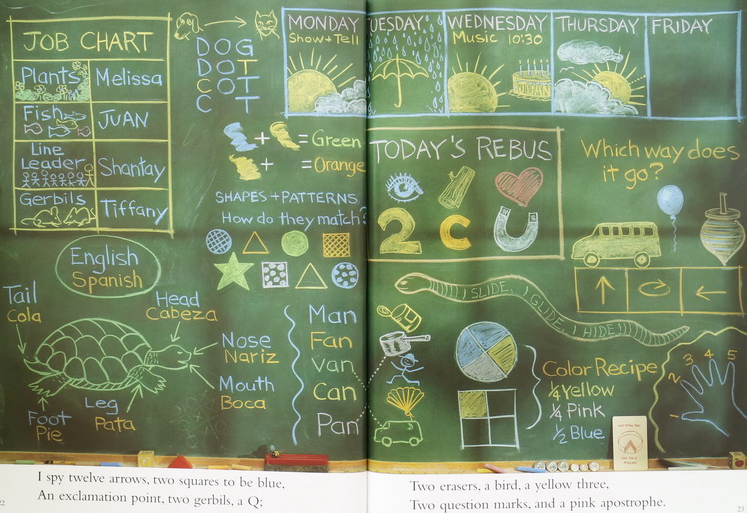 JOB CHART
Plants Melissa
Fish JUAN
Line Leader Shantay
Gerbils Tiffany
DOG
DOT
COT
C T
MONDAY
Show + Tell
TUESDAY
WEDNESDAY
Music 10:30
JUAN
THURSDAY
FRIDAY
+ = Green
+ = Orange
SHAPES + PATTERNS
How do they match?
TODAY'S REBUS
2 C U
Which way does
it go?
English
Spanish
Tail
Cola
Head
Cabeza
Nose
Nariz
Mouth
Boca
Leg
Pata
Foot
Pie
Man
Fan
Van
Can
Pan
I SLIDE, I GLIDE, I HIDE!!!!
Color Recipe
¼ Yellow
¼ Pink
½ Blue
2 3 4 5
I spy twelve arrows, two squares to be blue,
An exclamation point, two gerbils, a Q;
Two erasers, a bird, a yellow three,
Two question marks, and a pink apostrophe.
23